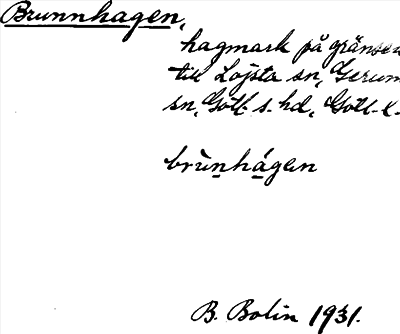 Brunnhagen,
hagmark på gränsen
till Lojsta sn, Gerum
sn, Gotl. s. hd, Gotl. l.
brùnhágen
B. Bolin 1931.